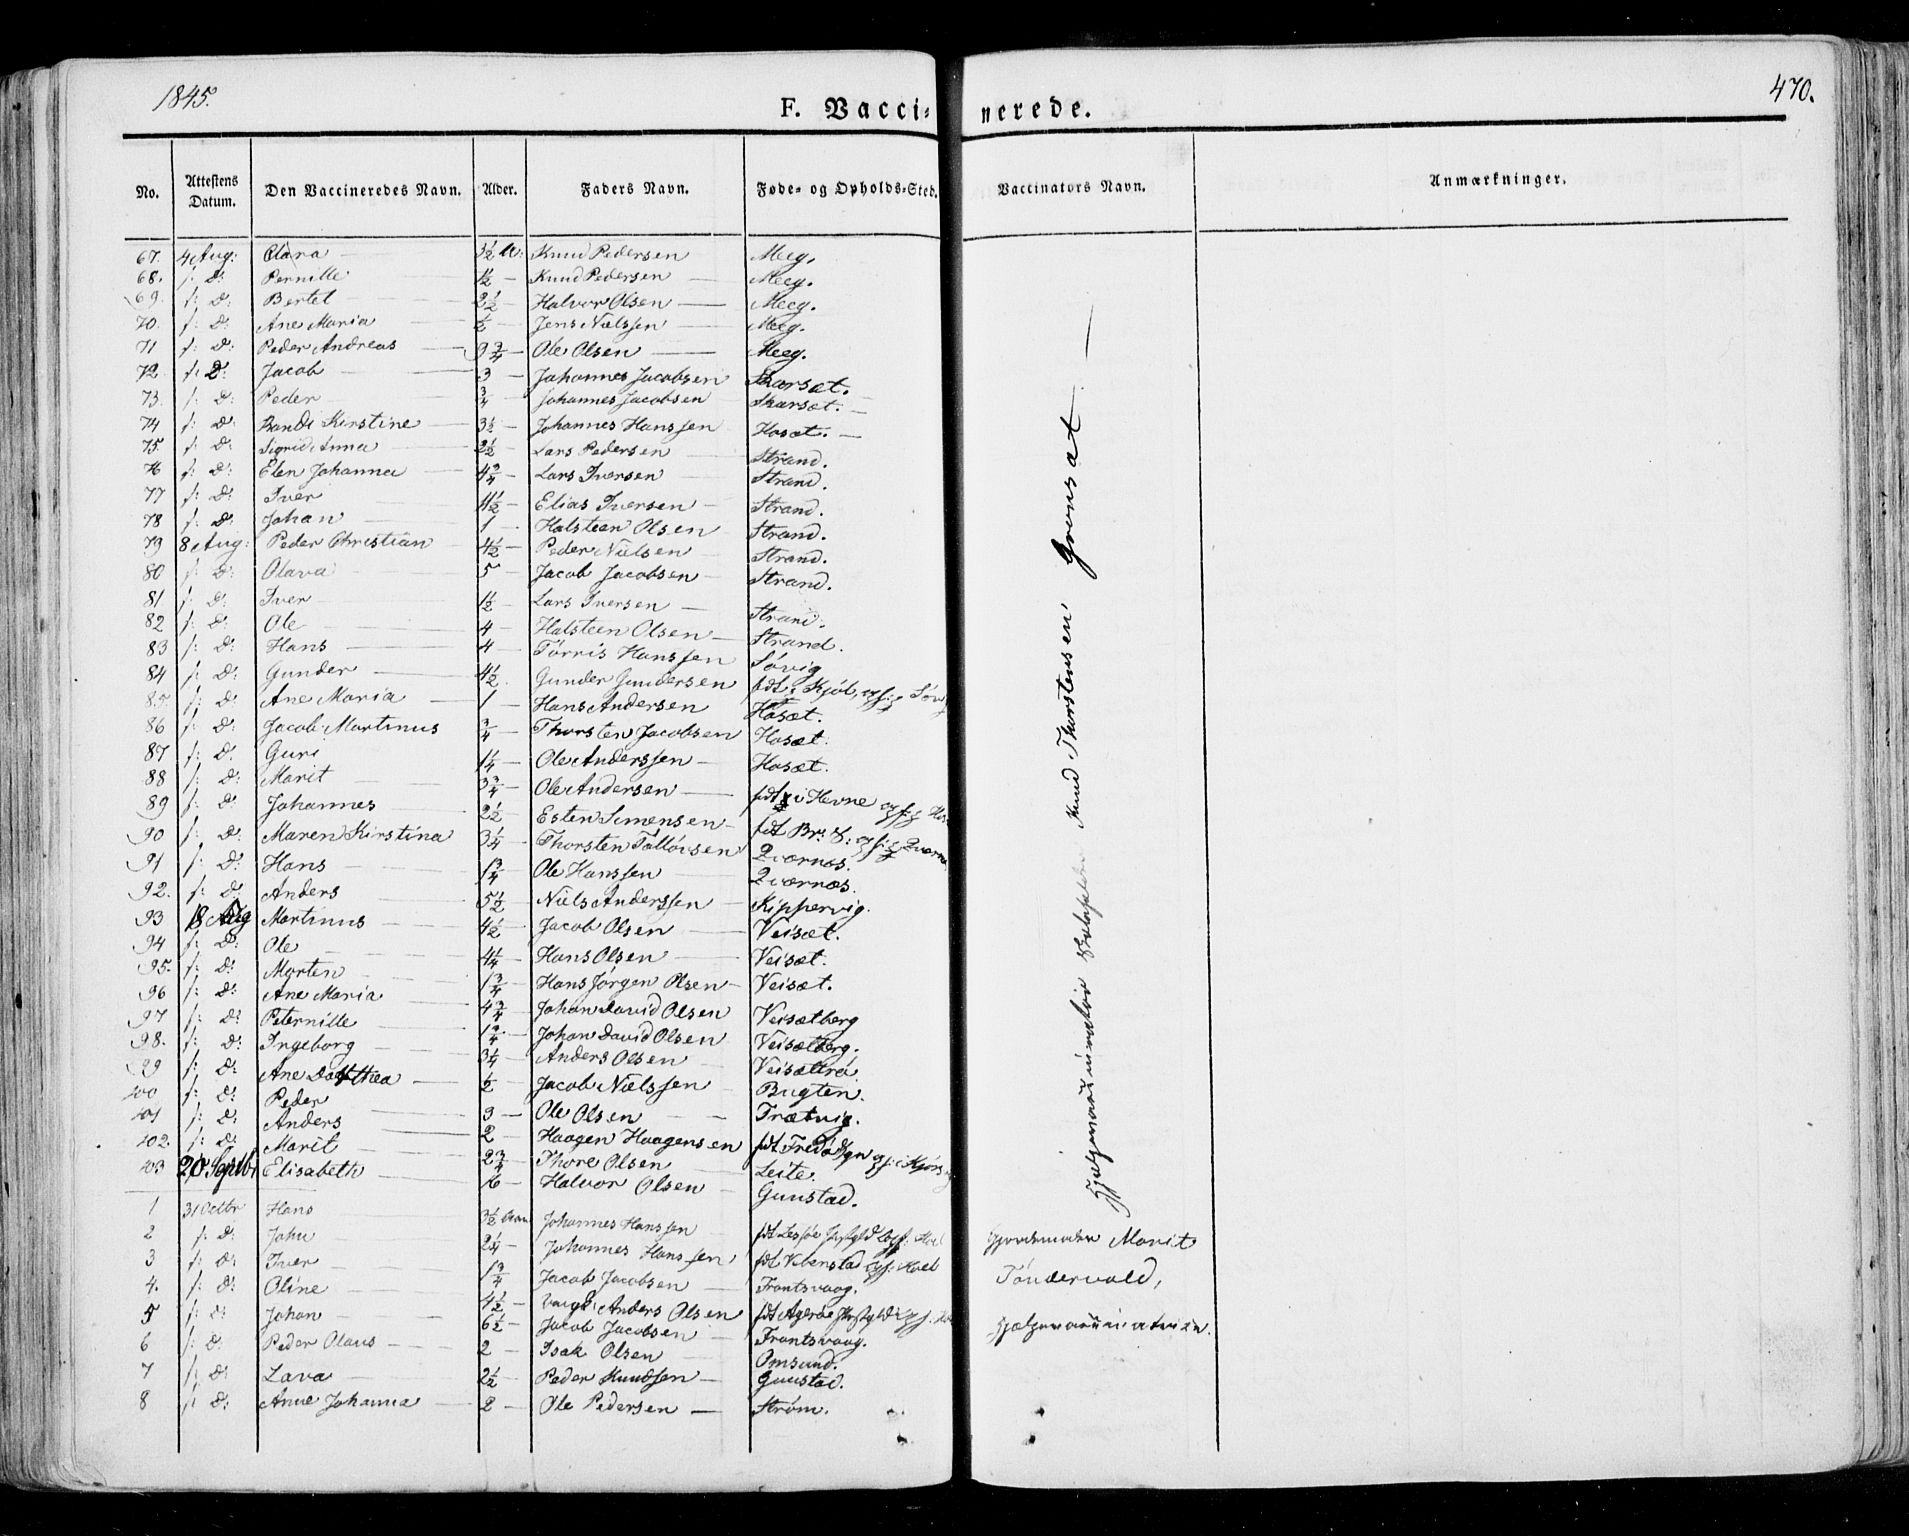 1845.
470.
F. Vaccinerede.
No. Attestens Datum. Den Vaccineredes Navn. Alder. Faders Navn. Føde- og Opholds-Sted. Vaccinators Navn. Anmærkninger.
67. 4 Aug: Clara 3 1/2 Knud Pedersen Meeg.
68. f: D: Pernille 1 1/2 Knud Pedersen Meeg.
69. f: D: Bertel 2 1/2 Halvor Olsen Meeg.
70. f: D: Ane Maria 1/2 Jens Nielssen Meeg.
71 f: D: Peder Andreas 9 3/4 Ole Olsen Meeg.
72. f: D: Jacob 3 Johannes Jacobsen Skarsæt.
73. f: D: Peder 3/4 Johannes Jacobsen Skarsæt.
74 f: D: Randi Kirstine 3 1/2 Johannes Hanssen Hosæt.
75. f: D: Sigrid Anna 2 1/2 Lars Pedersen Strand.
76 f: D: Elen Johanna 4 3/4 Lars Iversen Strand.
77 f: D: Iver 4 1/2 Elias Iversen Strand.
78 f: D: Johan 1 Halsteen Olsen Strand.
79 8 Aug: Peder Christian 4 1/2 Peder Nielsen Strand.
80 f: D: Olava 5 Jacob Jacobsen Strand.
81 f: D: Iver 1 1/2 Lars Iversen Strand.
82 f: D: Ole 4 Halsteen Olsen Strand.
83 f: D: Hans 4 Törris Hanssen Sövig
84 f: D: Gunder 4 1/2 Gunder Gundersen fdt i Kjöl,
85. f: D: Ane Maria 1 Hans Andersen Hosæt.
86 f: D: Jacob Martinus 3/4 Thorsten Jacobsen Hosæt.
87 f: D: Guri 1 1/4 Ole Anderssen Hosæt.
88 f: D: Marit 3 3/4 Ole Andersen fdt i Hevne
89 f: D: Johannes 2 1/2 Esten Simensen fdt Br: S:
90 f: D: Maren Kirstina 3 1/4 Thorsten Tollövsen Qværnæs.
91 f: D: Hans 1 3/4 Ole Hanssen Qværnæs.
92. f: D: Anders 5 1/2 Niels Anderssen Kippervig.
93 18 Aug Martinus 4 1/2 Jacob Olsen Veisæt.
94 f: D: Ole 4 1/4 Hans Olsen Veisæt.
95. f: D: Morten 1 3/4 Hans Jörgen Olsen Veisæt.
96 f: D: Ane Maria 4 3/4 Johan David Olsen Veisætberg
97 f: D: Peternille 1 3/4 Johan David Olsen Veisætberg.
98. f: D: Ingeborg 3 1/4 Anders Olsen Veisættrö
99 f: D: Ane Dorthea 1/2 Jacob Nielssen Bugten.
100 f: D: Peder 3 Ole Olsen Frætvig.
101 f: D: Anders 2 Haagen Haagensen fdt Fredö
102. f: D: Marit 2 3/4 Thore Olsen Leite.
103 20 Septbr Elisabeth Halvor Olsen Gunstad.
1 31 Octbr Hans 3 1/2 Johannes Hanssen
2 f: D: John 2 1/4 Johannes Hanssen
3 f: D: Iver 1 3/4 Jacob Jacobsen Frantsvaag.
4. f: D: Oline 4 1/2 Anders Olsen
5 f: D: Johan 6 1/2 Jacob Jacobsen Frantsvaag.
6 f: D: Peder Olaus 2 Isak Olsen Omsund.
7 f: D: Lava 2 1/2 Peder Knudsen Gunstad.
8 f: D: Anne Johanna 2 Ole Pedersen Ström.
Hjælpevaccinatör Knud Thorstensen Gronsæt
Gjordemoder Marit
Töndervold,
Hjælpevaccinatrice.